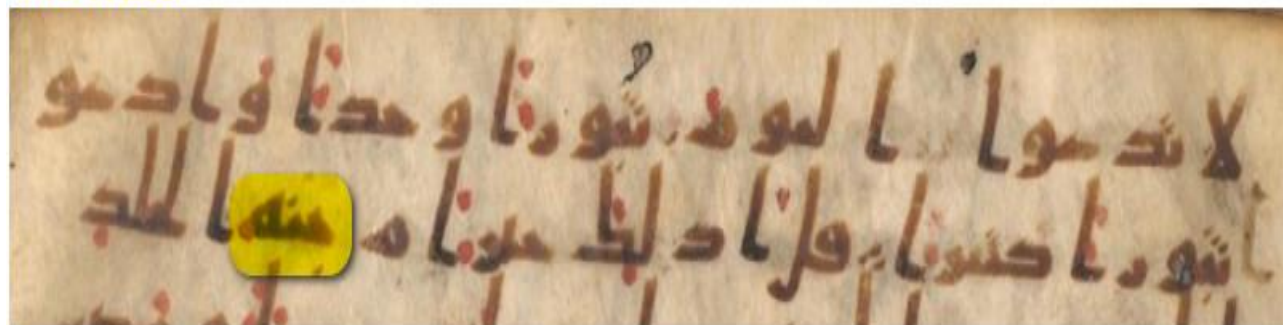 لا تدعوا اليوم ثبورا وحدا وادعو
ا ثبورا كثيرا قل اذلك خير ام جنه الخلد